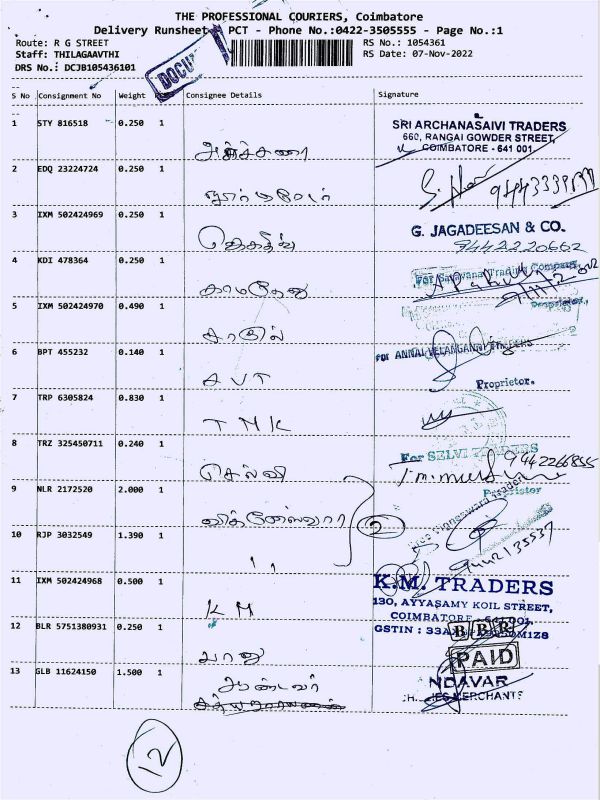 THE PROFESSIONAL COURIERS, Coimbatore
Delivery Runsheet PCT - Phone No.:0422-3505555 - Page No.:1
Route: R G STREET
RS No.: 1054361
Staff: THILAGAAVTHI
RS Date: 07-Nov-2022
DRS No.: DCJB105436101
S No Consignment No Weight Consignee Details Signature
1 STY 816518 0.250 1
SRI ARCHANASAIVI TRADERS
660, RANGAI GOWDER STREET,
COIMBATORE - 641 001
2 EDQ 23224724 0.250 1
3 IXM 502424969 0.250 1
G. JAGADEESAN & CO.
9442220662
4 KDI 478364 0.250 1 காமதேனு
For Saravana Trading Company,
5 IXM 502424970 0.490 1
Proprietor,
6 BPT 455232 0.140 1 AVT
For ANNAI VELANGANNI TRADERS
Proprietor.
7 TRP 6305824 0.830 1 TMK
8 TRZ 325450711 0.240 1 செல்வி
For SELVI TRADERS
9442266855
Proprietor
9 NLR 2172520 2.000 1 விக்னேஸ்வரா
2
10 RJP 3032549 1.390 1 ,,
9442135537
11 IXM 502424968 0.500 1 KM
K.M. TRADERS
130, AYYASAMY KOIL STREET,
COIMBATORE - 641 001.
GSTIN : 33A
12 BLR 5751380931 0.250 1 பானு
BBR
PAID
13 GLB 11624150 1.500 1 ஆண்டவர்
NDAVAR
MERCHANTS
12